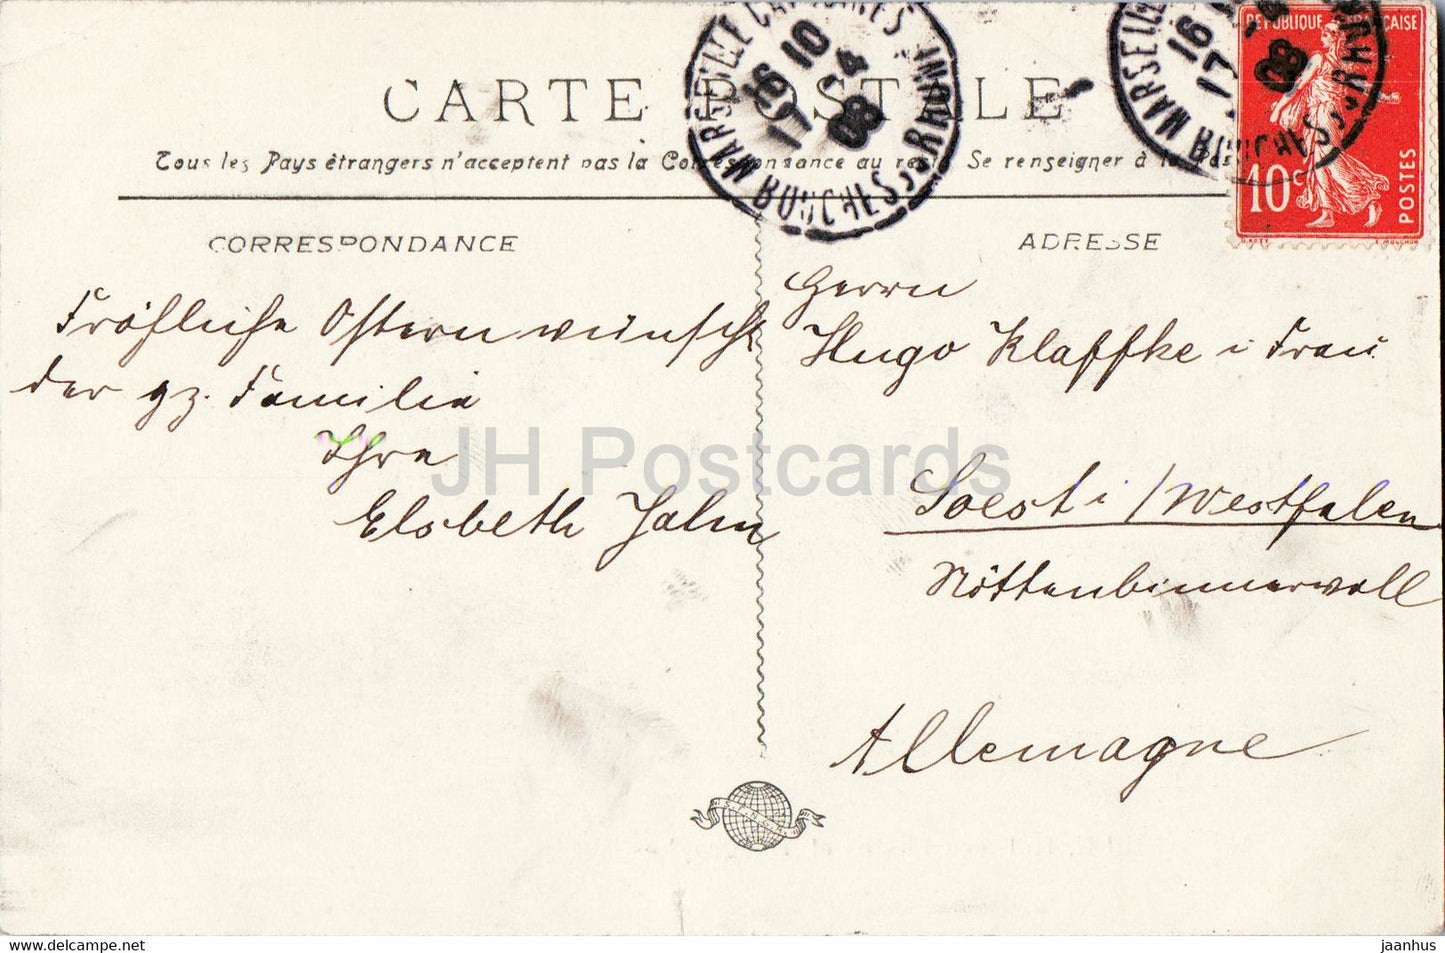 CARTE POSTALE
Tous les Pays étrangers n'acceptent pas la Correspondance au recto Se renseigner à la
MARSEILLE CAPUCINES
16 10
17 - 4
08
BOUCHES DU RHONE
MARSEILLE
16
17
08
BOUCHES DU RHONE
REPUBLIQUE FRANÇAISE
10 c
POSTES
O. ROTY
E. MOUCHON
CORRESPONDANCE
ADRESSE
Fröhliche Ostern wünscht
der gz. Familie
Ihre
Elsbeth Jahn
Herrn
Hugo Klaffke u Frau
Soest i / Westfalen
Nöttenbinnerwall
Allemagne
JH Postcards
www.jhpostcards.com
jaanhus